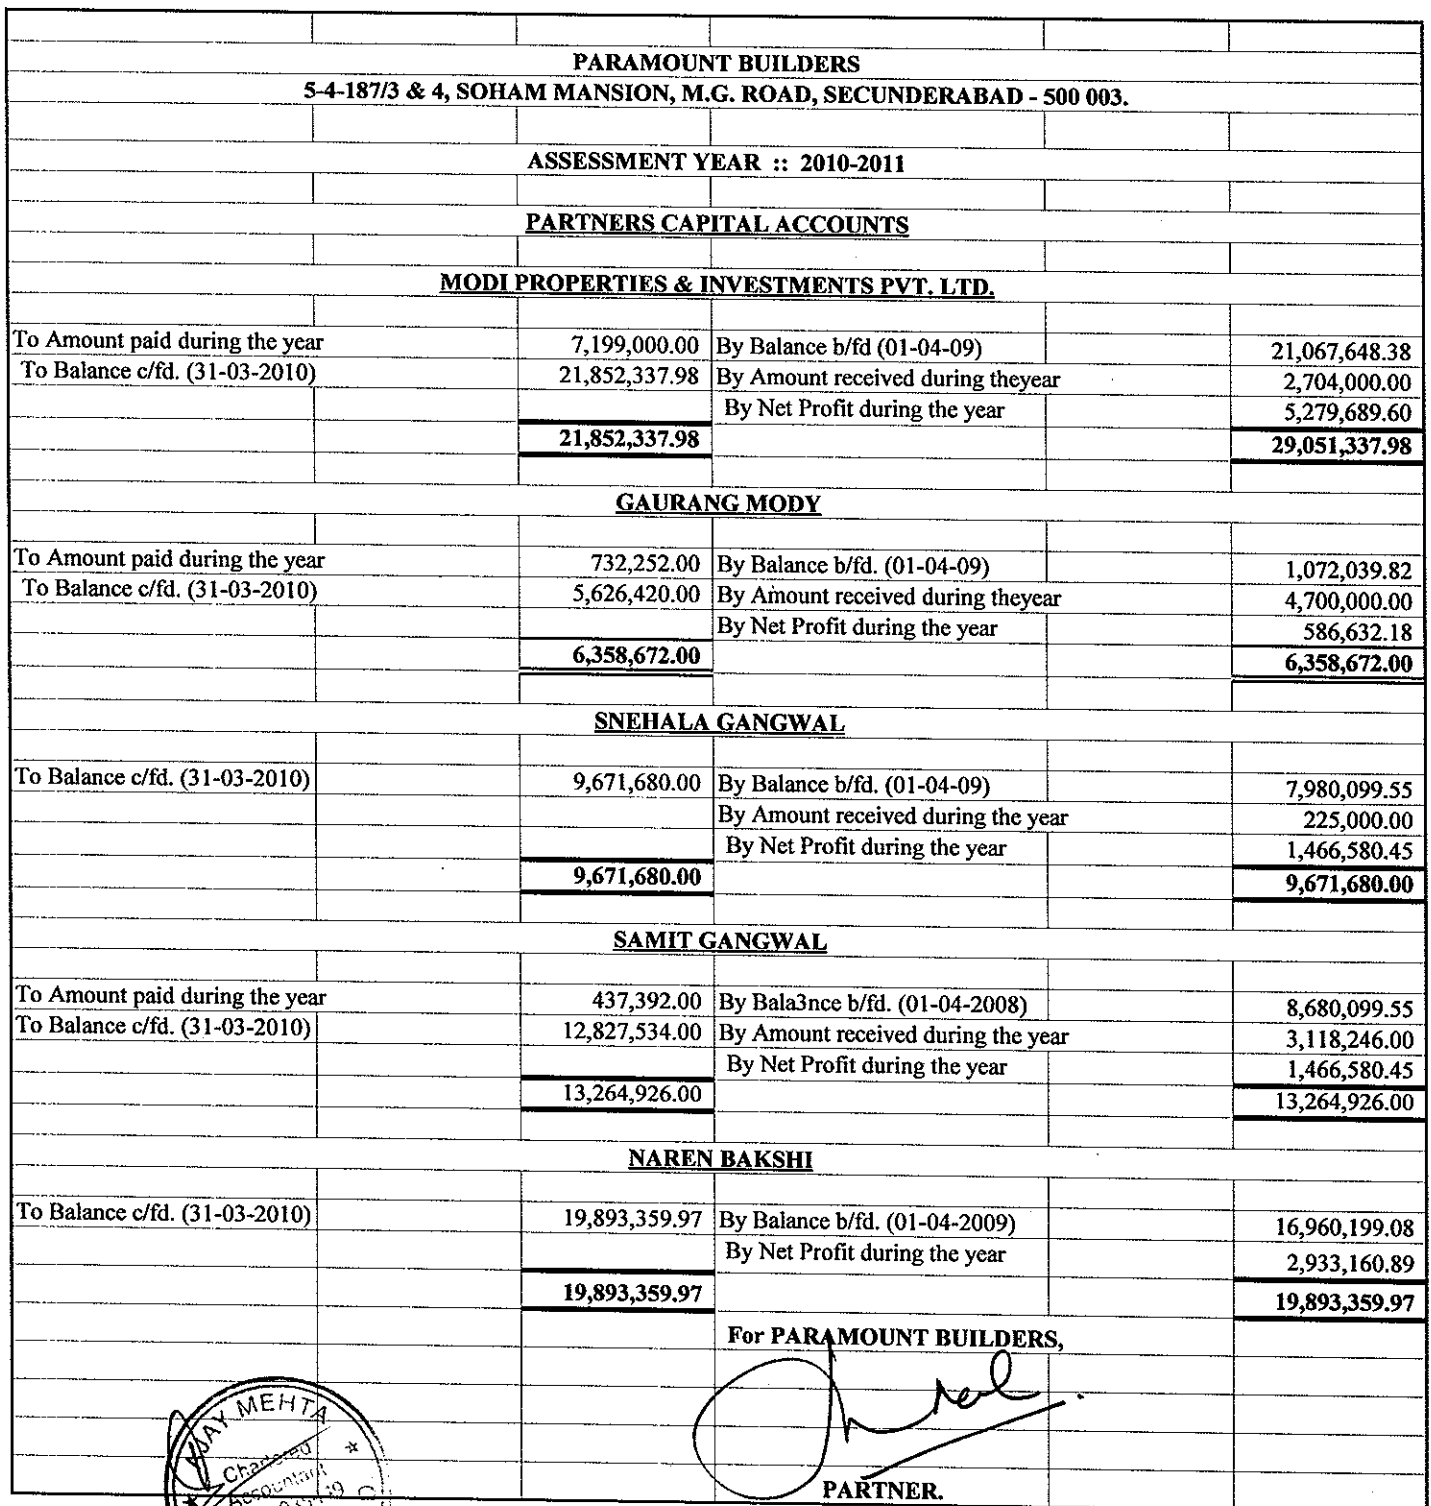 PARAMOUNT BUILDERS
5-4-187/3 & 4, SOHAM MANSION, M.G. ROAD, SECUNDERABAD - 500 003.
ASSESSMENT YEAR :: 2010-2011
PARTNERS CAPITAL ACCOUNTS
MODI PROPERTIES & INVESTMENTS PVT. LTD.
To Amount paid during the year 7,199,000.00 By Balance b/fd (01-04-09) 21,067,648.38
To Balance c/fd. (31-03-2010) 21,852,337.98 By Amount received during theyear 2,704,000.00
By Net Profit during the year 5,279,689.60
21,852,337.98 29,051,337.98
GAURANG MODY
To Amount paid during the year 732,252.00 By Balance b/fd. (01-04-09) 1,072,039.82
To Balance c/fd. (31-03-2010) 5,626,420.00 By Amount received during theyear 4,700,000.00
By Net Profit during the year 586,632.18
6,358,672.00 6,358,672.00
SNEHALA GANGWAL
To Balance c/fd. (31-03-2010) 9,671,680.00 By Balance b/fd. (01-04-09) 7,980,099.55
By Amount received during the year 225,000.00
By Net Profit during the year 1,466,580.45
9,671,680.00 9,671,680.00
SAMIT GANGWAL
To Amount paid during the year 437,392.00 By Bala3nce b/fd. (01-04-2008) 8,680,099.55
To Balance c/fd. (31-03-2010) 12,827,534.00 By Amount received during the year 3,118,246.00
By Net Profit during the year 1,466,580.45
13,264,926.00 13,264,926.00
NAREN BAKSHI
To Balance c/fd. (31-03-2010) 19,893,359.97 By Balance b/fd. (01-04-2009) 16,960,199.08
By Net Profit during the year 2,933,160.89
19,893,359.97 19,893,359.97
For PARAMOUNT BUILDERS,
PARTNER.
MEHTA
Chartered